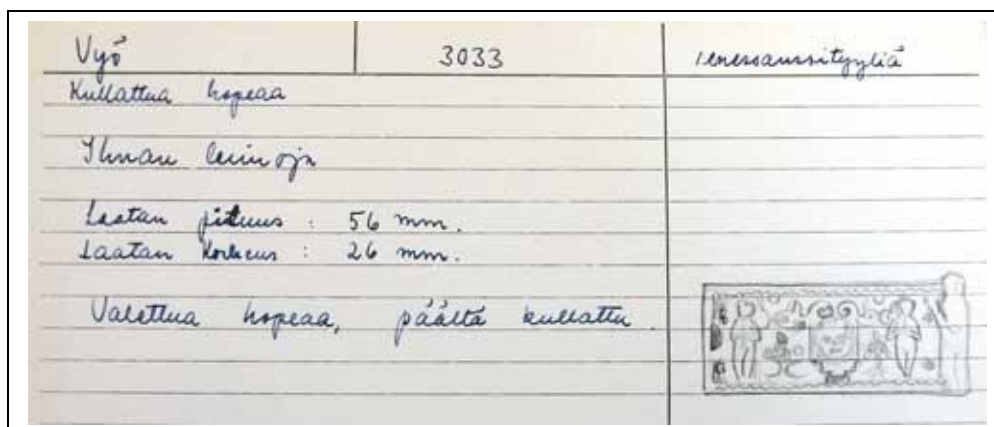 Vyö 3033 renessanssityyliä
Kullattua hopeaa
Ilman leimoja
Laatan pituus : 56 mm.
Laatan korkeus : 26 mm.
Valettua hopeaa, päältä kullattu.